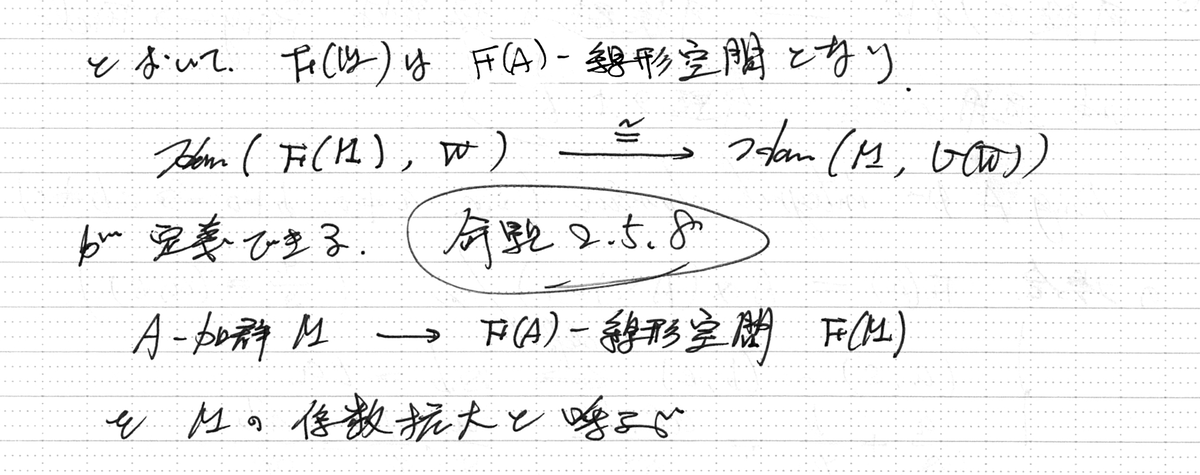 とおいて. F(M)は F(A)-線形空間となり.
Hom(F(M), W) ≅→ Hom(M, G(W))
が定義できる. 命題2.5.8
A-加群 M → F(A)-線形空間 F(M)
を Mの係数拡大と呼ぶ